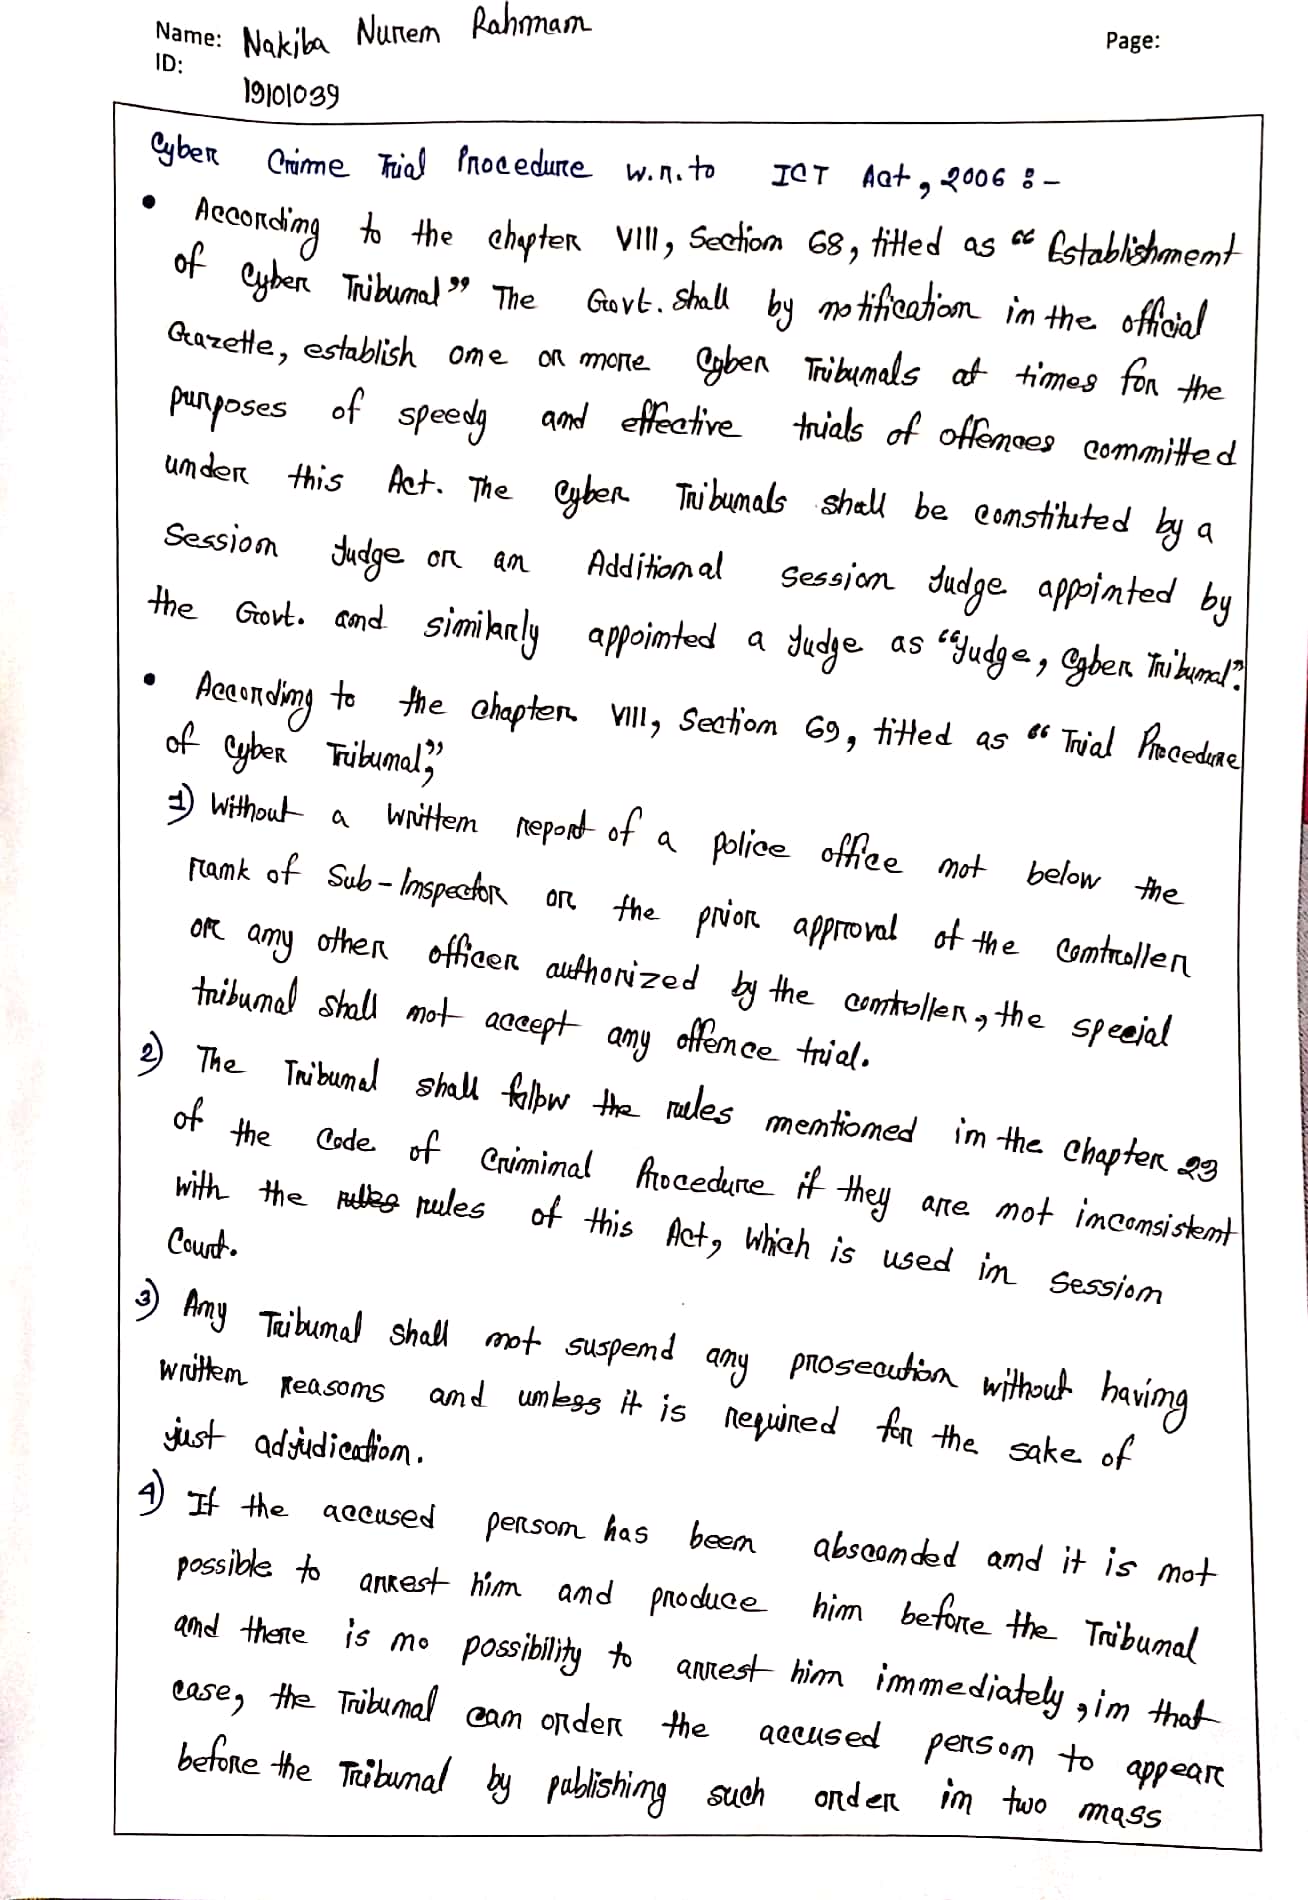 Name: Nakiba Nurem Rahmam
Page:
ID:
19101039
Cyber Crime Trial Procedure w.r.to ICT Act, 2006 :-
• According to the chapter VIII, Section 68, titled as "Establishment
of Cyber Tribunal" The Govt. shall by notification in the official
Gazette, establish one or more Cyber Tribunals at times for the
purposes of speedy and effective trials of offences committed
under this Act. The Cyber Tribunals shall be constituted by a
Session Judge or an Additional Session Judge appointed by
the Govt. and similarly appointed a Judge as "Judge, Cyber Tribunal".
• According to the chapter VIII, Section 69, titled as "Trial Procedure
of Cyber Tribunal",
1) Without a written report of a police office not below the
rank of Sub-Inspector or the prior approval of the Controller
or any other officer authorized by the controller, the special
tribunal shall not accept any offence trial.
2) The Tribunal shall follow the rules mentioned in the Chapter 23
of the Code of Criminal Procedure if they are not inconsistent
with the rules rules of this Act, which is used in Session
Court.
3) Any Tribunal shall not suspend any prosecution without having
written reasons and unless it is required for the sake of
just adjudication.
4) If the accused person has been absconded and it is not
possible to arrest him and produce him before the Tribunal
and there is no possibility to arrest him immediately, in that
case, the Tribunal can order the accused person to appear
before the Tribunal by publishing such order in two mass